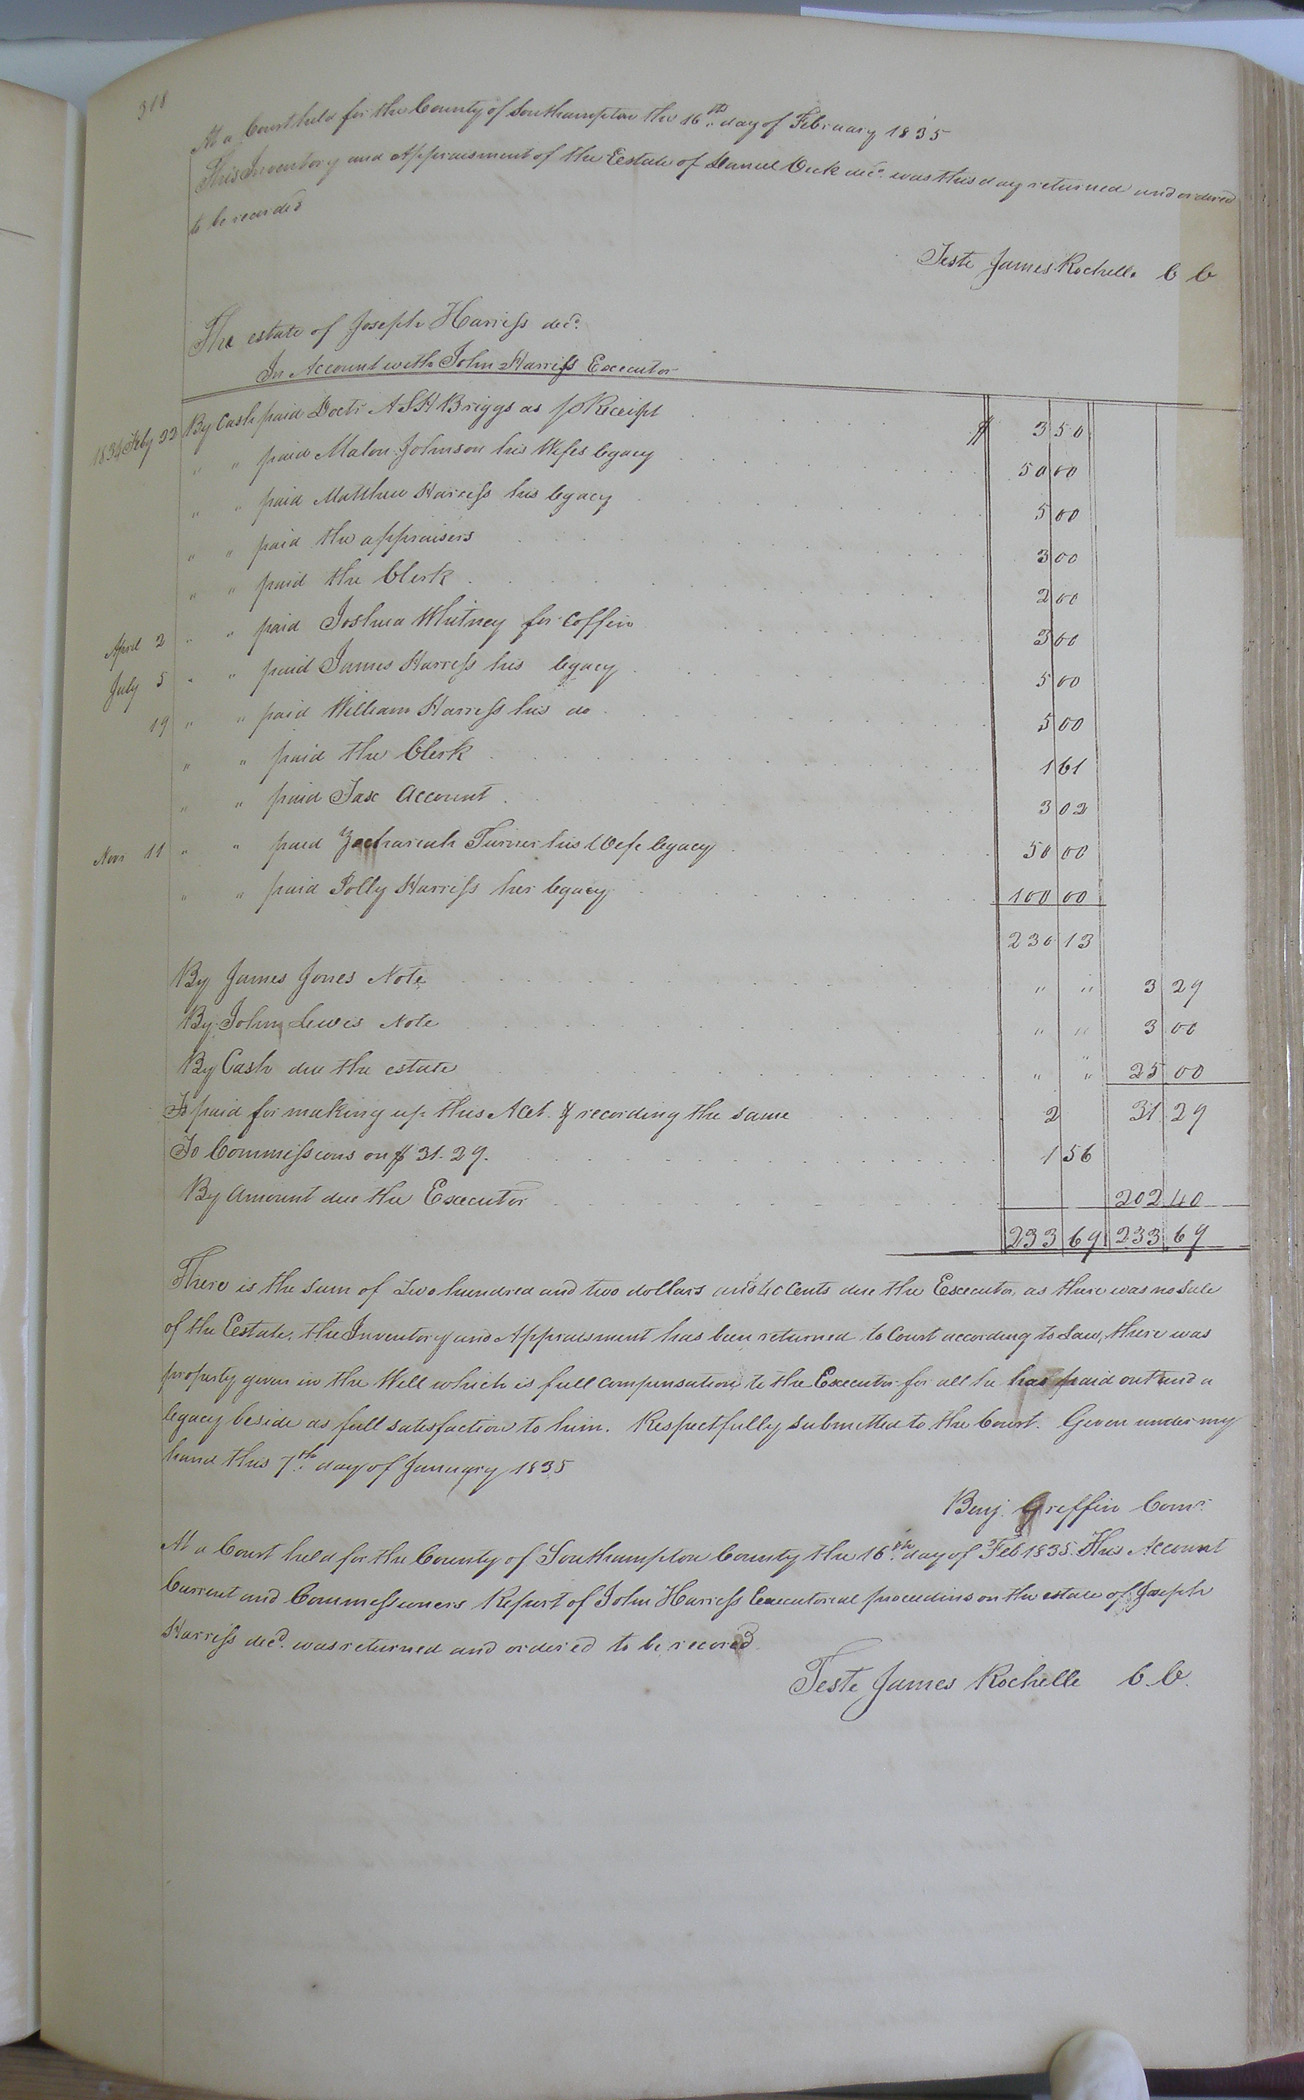 318
At a Court held for the County of Southampton the 16th day of February 1835
This Inventory and Appraisment of the Estate of Daniel dec'd. was this day returned and ordered
to be recorded
Teste James Rochelle C C
The estate of Joseph Harriss dec'd.
In Account with John Harriss Executor
1834 Feby 22 By Cash paid Doctr A S H Briggs as p Receipt $ 3 50
" " paid Malon Johnson his Wifes legacy 50 00
" " paid Matthew Harriss his legacy 5 00
" " paid the appraisers 3 00
" " paid the Clerk 2 00
April 2 " " paid Joshua Whitney for Coffin 3 00
July 5 " " paid James Harriss his legacy 5 00
19 " " paid William Harriss his do 5 00
" " paid the Clerk 1 61
" " paid Tax Account 3 02
Novr 11 " " paid Zachariah Turner his Wife legacy 50 00
" " paid Polly Harriss her legacy 100 00
230 13
By James Jones Note " " 3 29
By John Lewis Note " " 3 00
By Cash due the estate " " 25 00
To paid for making up this Act. & recording the same 2 31 29
To Commissions on $ 31.29. 1 56
By Amount due the Executor 202 40
233 69 233 69
There is the sum of Two hundred and two dollars and 40 Cents due the Executor, as there was no Sale
of the Estate, the Inventory and Appraisment has been returned to Court according to Law, there was
property given in the Will which is full compensation to the Executor for all he has paid out and a
legacy beside as full satisfaction to him. Respectfully submitted to the Court. Given under my
hand this 7th day of January 1835
Benj. Griffin Comr.
At a Court held for the County of Southampton County the 16th day of Feb 1835. This Account
Current and Commissioners Report of John Harriss Executorial proceedins on the estate of Joseph
Harriss decd. was returned and ordered to be recored
Teste James Rochelle C. C.